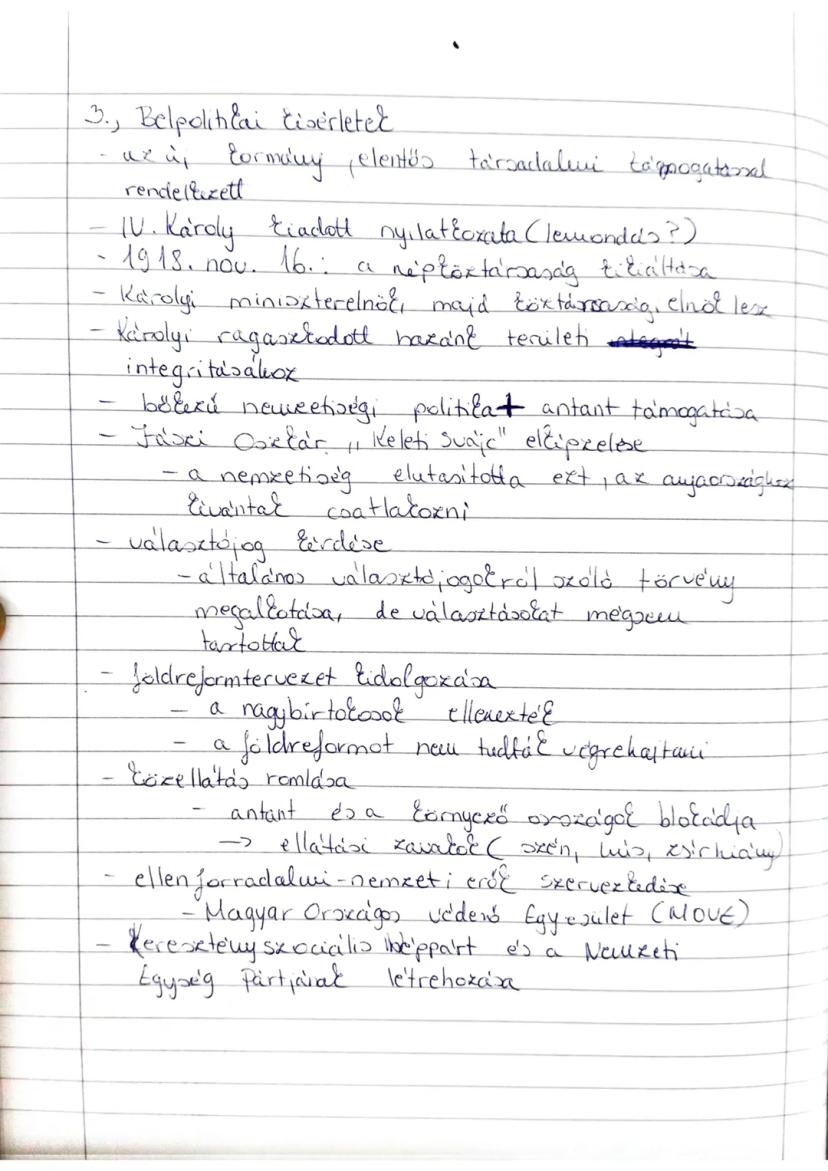 3., Belpolitikai kísérletek
- az új kormány jelentős társadalmi támogatással
rendelkezett
- IV. Károly kiadott nyilatkozata (lemondás?)
- 1918. nov. 16.: a népköztársaság kikiáltása
- Károlyi miniszterelnök, majd köztársasági elnök lesz
- Károlyi ragaszkodott hazánk területi
integritásához
- békezű nemzetiségi politika + antant támogatása
- Jászi Oszkár „Keleti Svájc" elképzelése
- a nemzetiség elutasította ezt, az anyaországhoz
kívántak csatlakozni
- választójog kérdése
- általános választójogokról szóló törvény
megalkotása, de választásokat mégsem
tartottak
- földreformtervezet kidolgozása
- a nagybirtokosok ellenezték
- a földreformot nem tudták végrehajtani
- közellátás romlása
- antant és a környező országok blokádja
→ ellátási zavarok (szén, hús, zsírhiány)
- ellenforradalmi-nemzeti erők szerveződése
- Magyar Országos Véderő Egyesület (MOVE)
- Keresztényszociális Néppárt és a Nemzeti
Egység Pártjának létrehozása